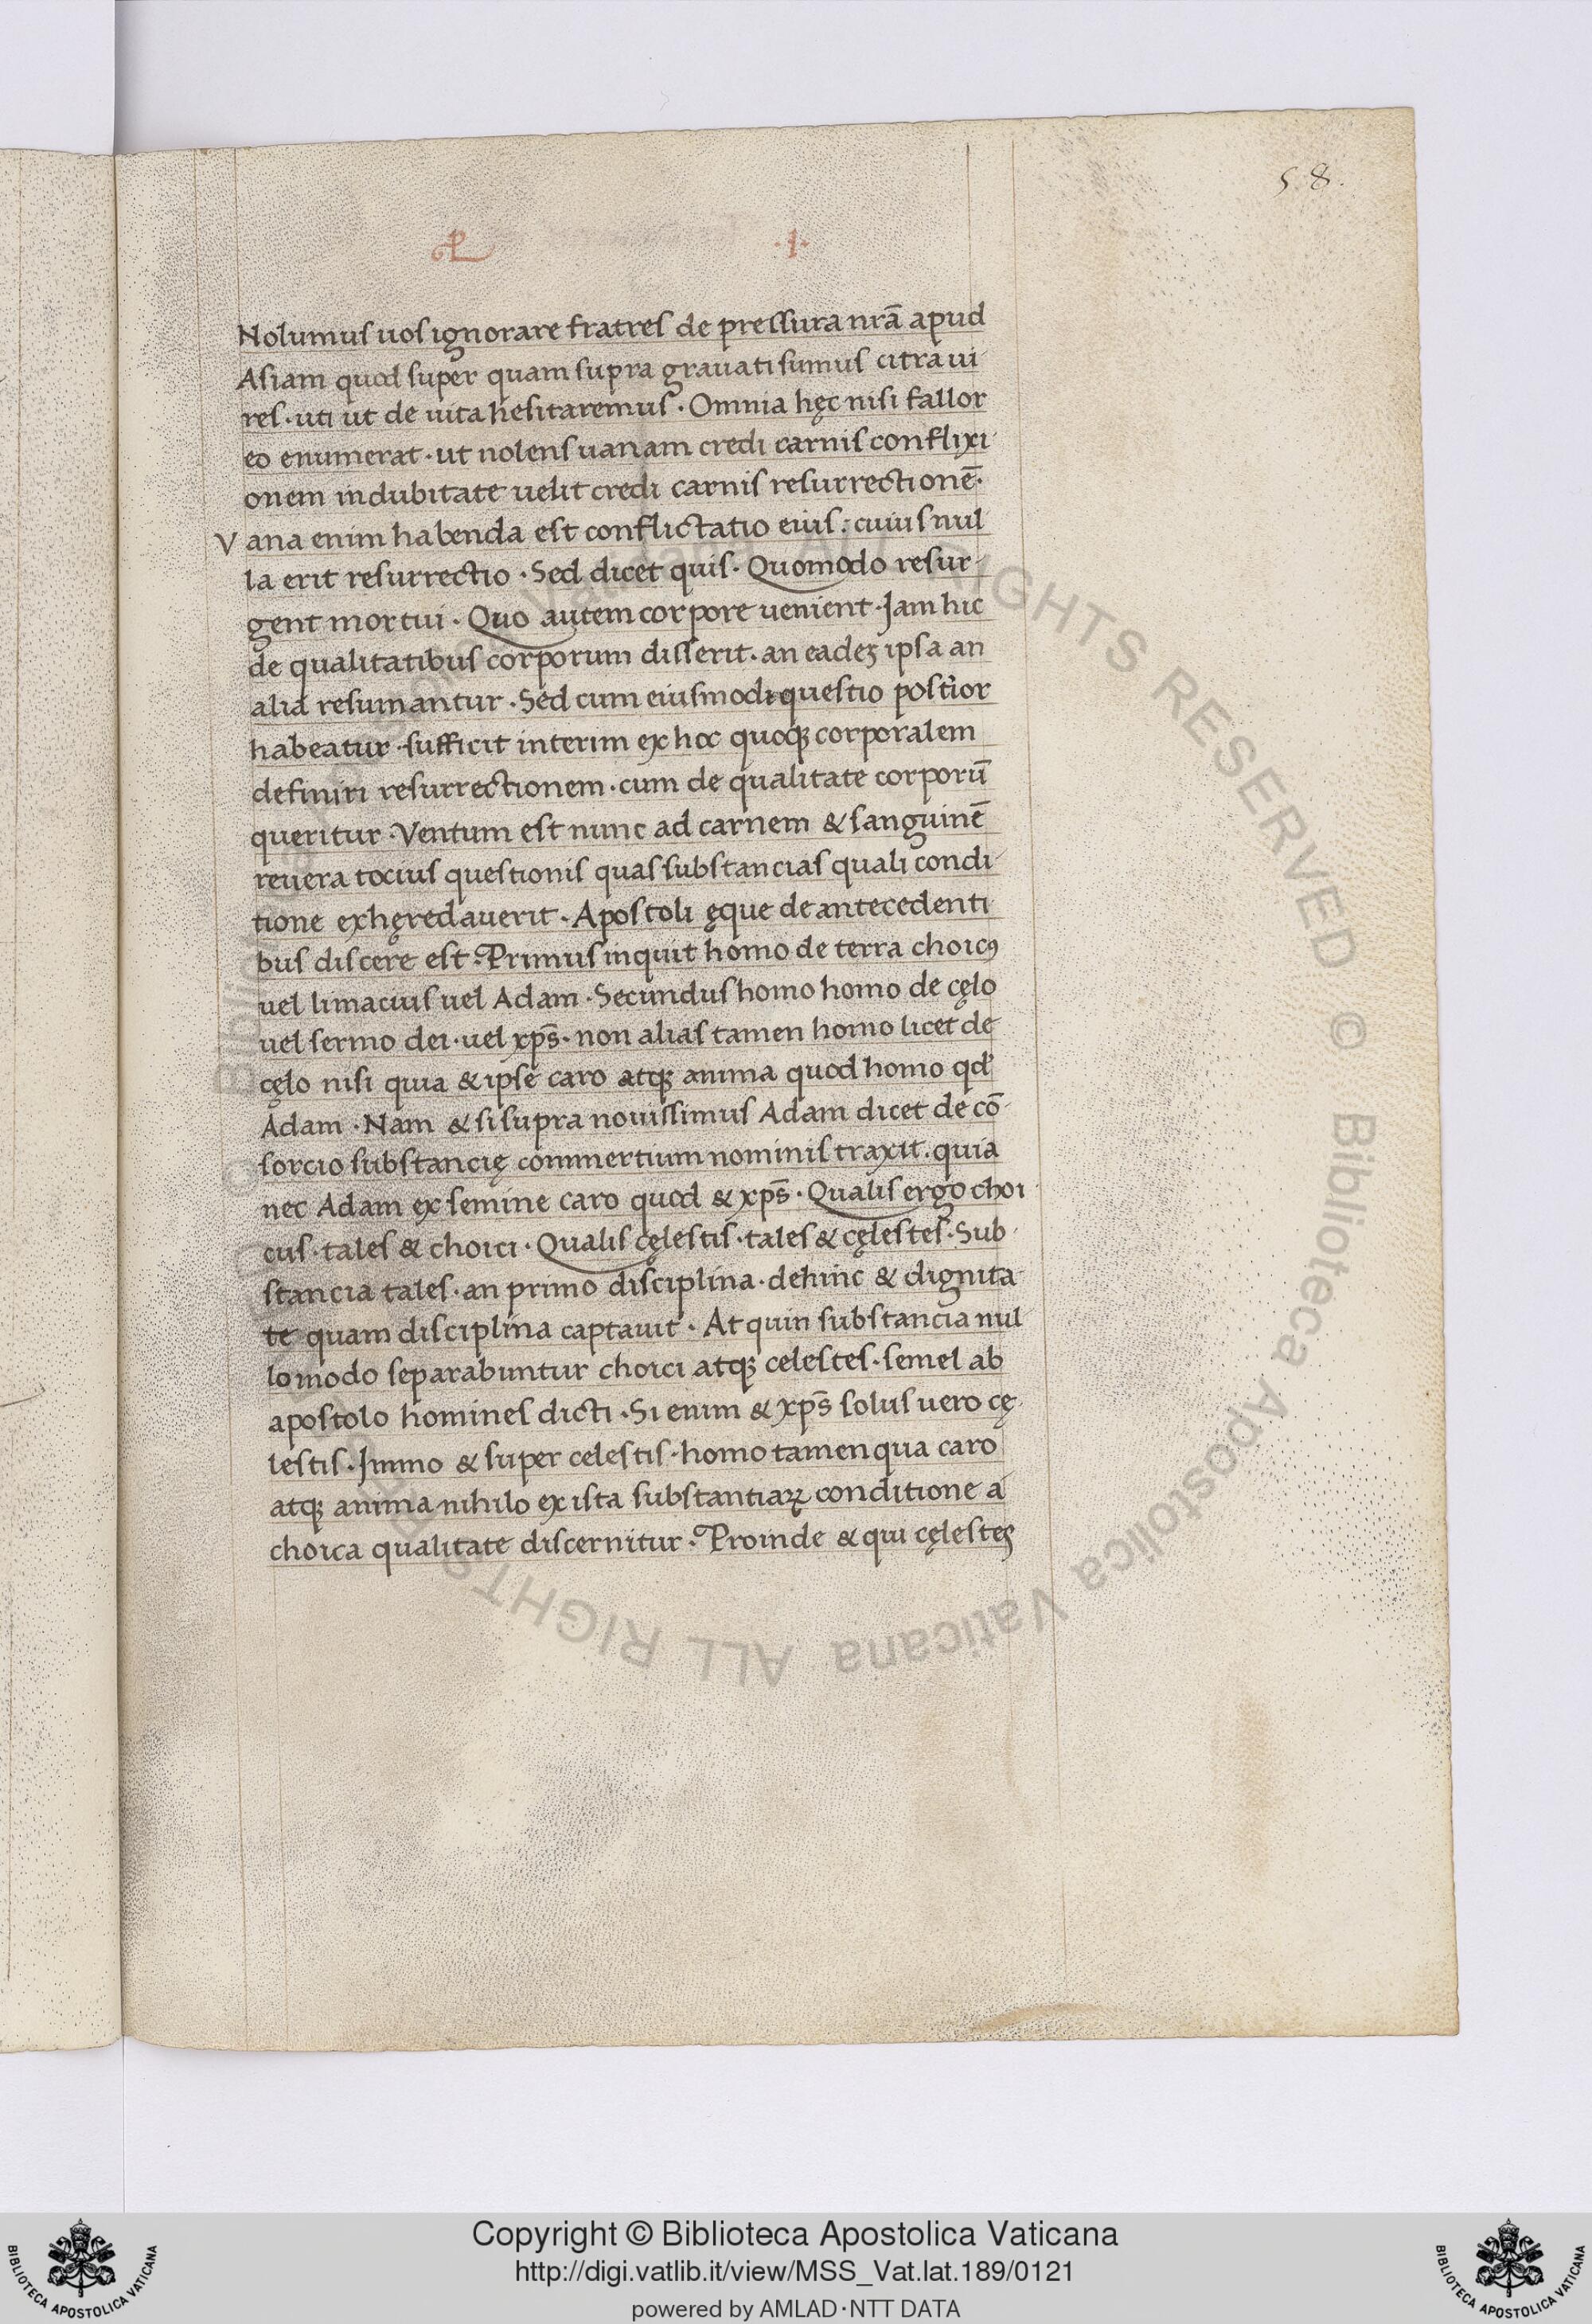 58.
·I·
Nolumus uos ignorare fratres de pressura nrā apud
Asiam quod super quam supra grauati sumus citra ui
res· uti ut de uita hesitaremus· Omnia hęc nisi fallor
eo enumerat· ut nolens uanam credi carnis conflixi
onem indubitate uelit credi carnis resurrectionē·
Vana enim habenda est conflictatio eius: cuius nul
la erit resurrectio· Sed dicet quis· Quomodo resur
gent mortui· Quo autem corpore uenient· Jam hic
de qualitatibus corporum disserit· an eadeꝫ ipsa an
alia resumantur· Sed cum eiusmodi questio postior
habeatur· sufficit interim ex hoc quoqꝫ corporalem
definiri resurrectionem· cum de qualitate corporū
queritur· Ventum est nunc ad carnem & sanguinē
reuera tocius questionis quas substancias quali condi
tione exhęredauerit· Apostoli ęque de antecedenti
bus discere est· Primus inquit homo de terra choicꝰ
uel limacius uel Adam· Secundus homo homo de cęlo
uel sermo dei· uel xp̄s· non alias tamen homo licet de
cęlo nisi quia & ipse caro atqꝫ anima quod homo qd'
Adam· Nam & si supra nouissimus Adam dicet de cō
sorcio substancię commertium nominis traxit· quia
nec Adam ex semine caro quod & xp̄s· Qualis ergo choi
cus· tales & choici· Qualis cęlestis· tales & cęlestes· Sub
stancia tales· an primo disciplina· dehinc & dignita
te quam disciplina captauit· At quin substancia nul
lo modo separabuntur choici atqꝫ celestes· semel ab
apostolo homines dicti· Si enim & xp̄s solus uero cę
lestis· Jmmo & super celestis· homo tamen qua caro
atqꝫ anima nihilo ex ista substantiaꝝ conditione a
choica qualitate discernitur· Proinde & qui cęlestes
Biblioteca Apostolica Vaticana ALL RIGHTS RESERVED © Biblioteca Apostolica Vaticana ALL RIGHTS
Copyright © Biblioteca Apostolica Vaticana
http://digi.vatlib.it/view/MSS_Vat.lat.189/0121
powered by AMLAD·NTT DATA
BIBLIOTECA APOSTOLICA VATICANA
BIBLIOTECA APOSTOLICA VATICANA